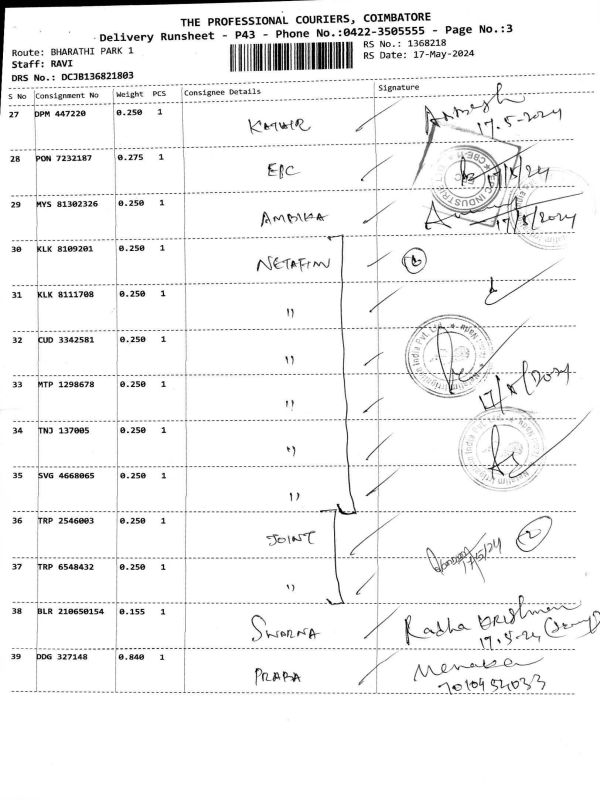 THE PROFESSIONAL COURIERS, COIMBATORE
Delivery Runsheet - P43 - Phone No.:0422-3505555 - Page No.:3
Route: BHARATHI PARK 1
RS No.: 1368218
Staff: RAVI
RS Date: 17-May-2024
DRS No.: DCJB136821803
S No Consignment No Weight PCS Consignee Details Signature
27 DPM 447220 0.250 1
17.5-2024
28 PON 7232187 0.275 1 EPC 17/5/24
29 MYS 81302326 0.250 1 AMBIKA 17/5/2024
30 KLK 8109201 0.250 1 NETAFIM 6
31 KLK 8111708 0.250 1 "
32 CUD 3342581 0.250 1 "
33 MTP 1298678 0.250 1 " 17/5/2024
34 TNJ 137005 0.250 1 "
35 SVG 4668065 0.250 1 "
36 TRP 2546003 0.250 1 JOINT 2
17/5/24
37 TRP 6548432 0.250 1 "
38 BLR 210650154 0.155 1 SWARNA Radha Krishnan
17.5-24
39 DDG 327148 0.840 1 PRABA Menaka
7010454033